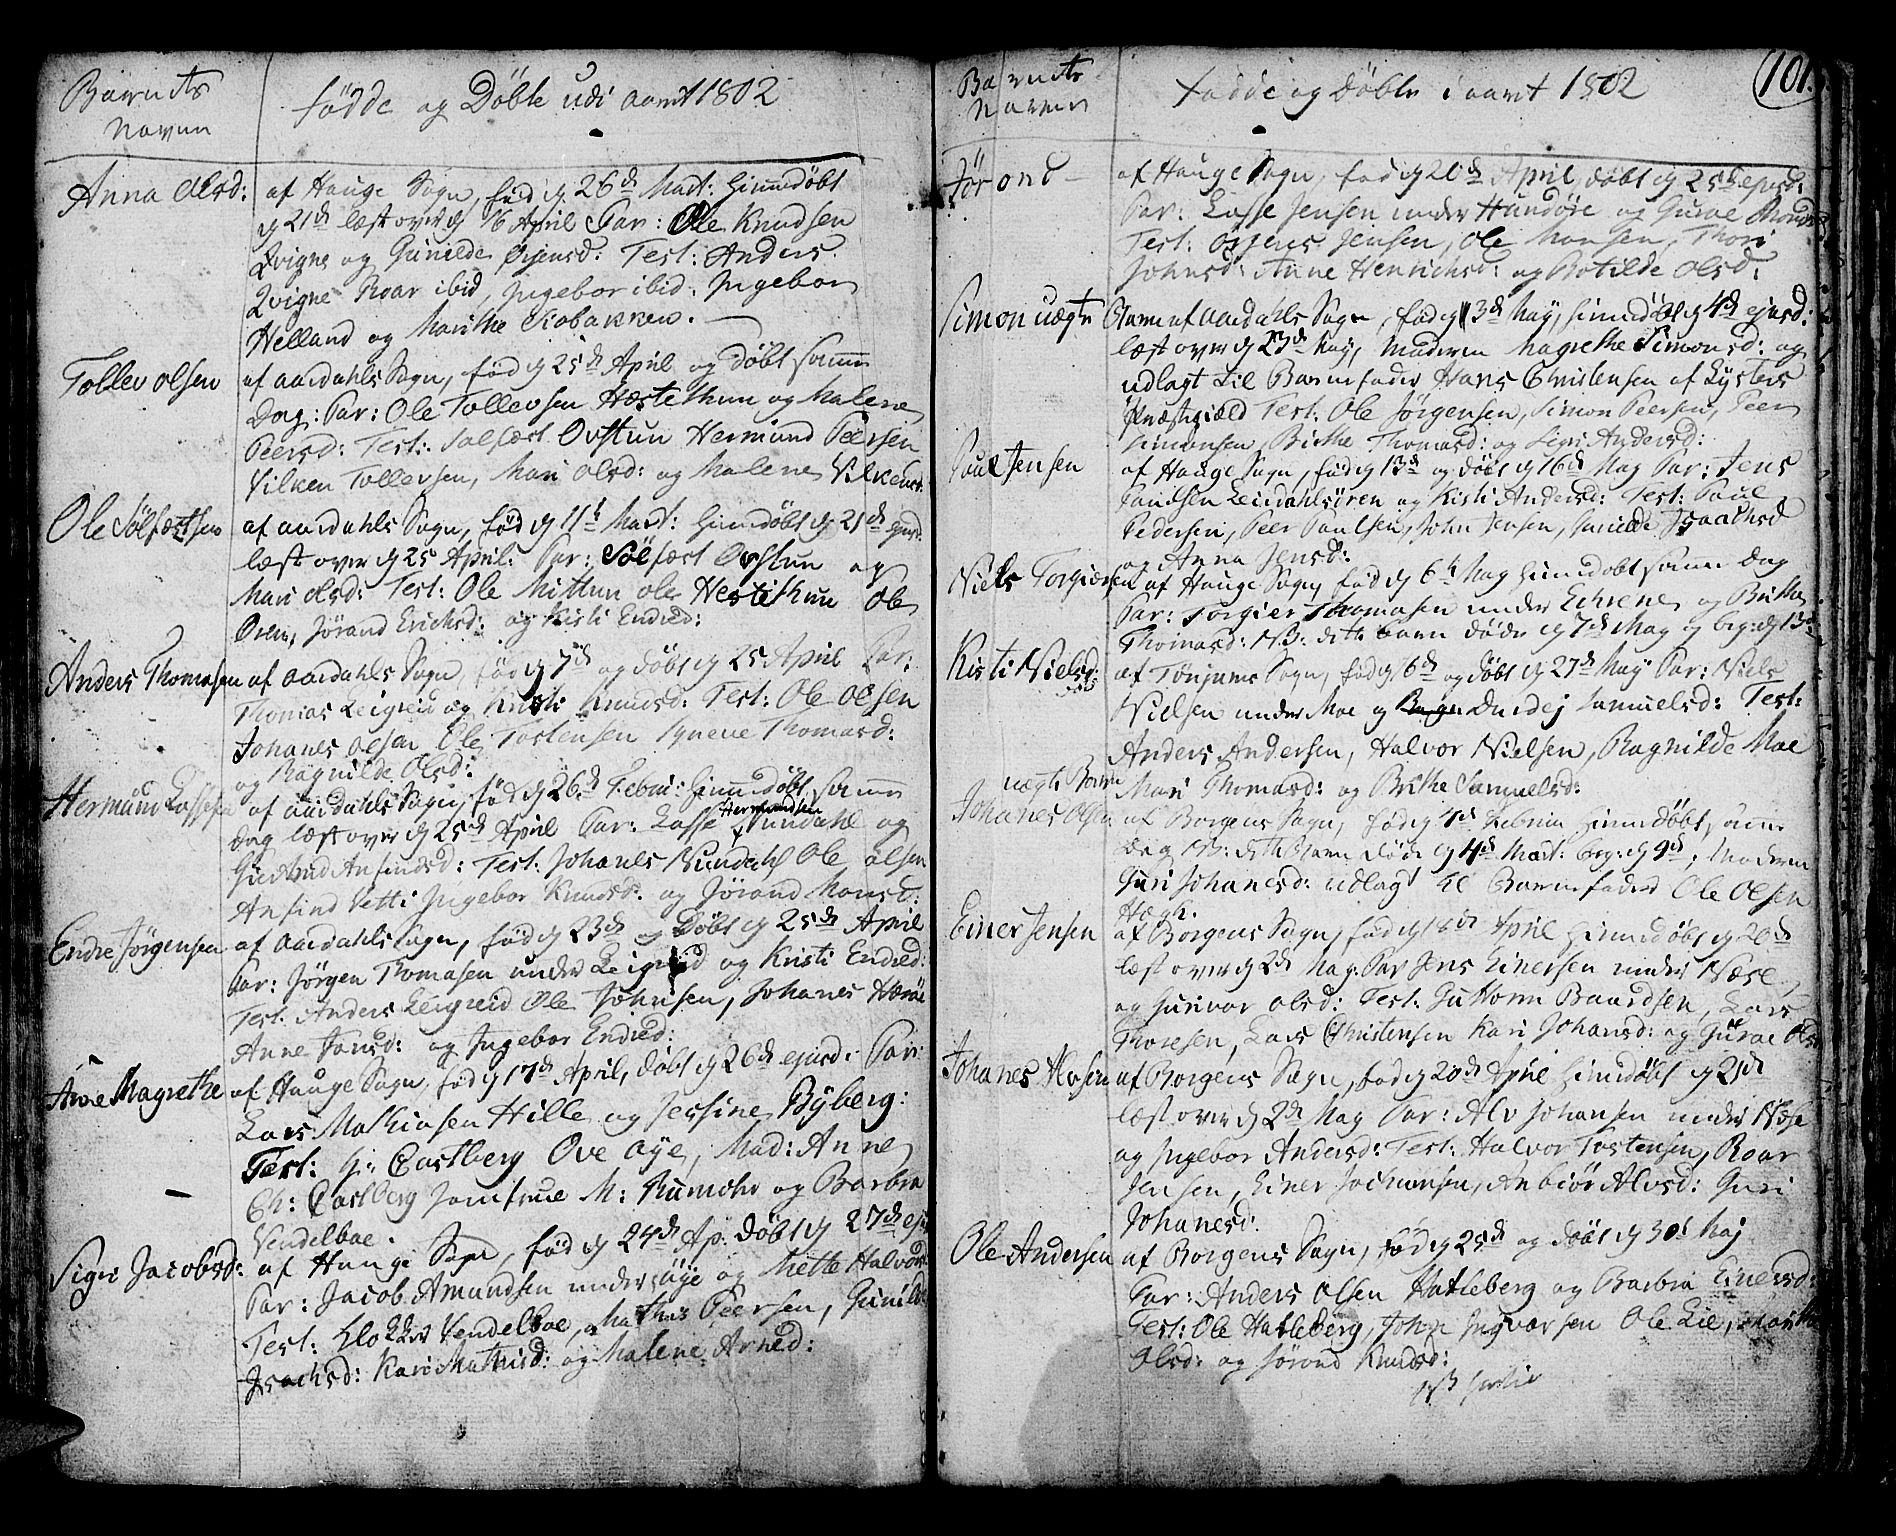 Barnets
Navnn
fødde og Døbte udi aaret 1802
Anna Olsd:
af Hauge Sogn, fød d 26de Mart: hiemdøbt
d 21de læst over d 16 April Par: Ole Knudsen
Qvigne og Gunilde Orjensd: Test: Anders
Qvigne Roar ibid, Ingebor ibid: Ingebor
Helland og Marithe
Tollev Olsen
af aardahls Sogn, fød d 25de April og døbt samme
Dag: Par: Ole Tollevsen Hæstethun og Malene
Peersd: Test: Solfæst Ovstun Hermund Peersen
Vilken Tollevsen, Mari Olsd: og Malene Vilkensd
Ole Solfæstsen
af aardahls Sogn, fød d 11t Mart: hiemdøbt d 21de ejusd
læst over d 25 April: Par: Solfæst Ovstun og
Mari Olsd: Test: Ole Mittun Ole Hestethun Ole
Oven, Jørand Erichsd: og Kisti Endred:
Anders Thomasen
af aardahls Sogn, fød d 7de og døbt d 25 April Par:
Thomas Leigreid og Kristi Knudsd: Test: Ole Olsen
Johanes Olsen Ole Tostensen Synneve Thomasd:
og Ragnilde Olsd:
Hermund Lassesen
af aardahls Sogn, fød d 26de Febru: hiemdøbt samme
Hermundsen
Dag læst over d 25de April Par: Lasse Sundahl og
Giertrud Ansindsd: Test: Johanes Sundahl Ole Olsen
Anfind Vetti Ingebor Knudsd: og Jørand Monsd:
Endre Jørgensen
af aardahls Sogn, fød d 23de og Døbt d 25de April
Par: Jørgen Thomasen under Leigreid og Kristi Endred:
Test: Anders Leigreid Ole Johnsen, Johanes
Anne Jensd: og Ingebor Endred:
Anne Magrethe
af Hauge Sogn, fød d 17de April, døbt d 26de ejusd: Par:
Lars Mathiasen Hille og Jessine Byberg:
Test: H: Castberg Ove Aye, Mad: Anne
Ch: Castberg Jomfrue M: Rumohr og Barbra
Vendelboe.
Sigri Jacobsd:
af Hauge Sogn, fød d 24de Ap: døbt d 27de ejus
Par: Jacob Amundsen under øye og Mette Halvorsd
Test: Klokker Vendelboe, Mathis Peersen, Gunild
Isachsd: Kari Mathisd: og Malene Arned:
Barnets
Navnn
fødde og Døbte i aaret 1802
101.
Jørond
af Hauge Sogn, fød d 20de April, døbt d 25de ejusd:
Par: Lasse Jensen under Hundøre og Guroe
Test: Orjens Jensen, Ole Monsen, Thori
Johnsd: Anne Henrichsd: og Botilde Olsd:
Simon uægte
Barn af aardahls Sogn, fød d 3de May, hiemdøbt d 4de ejusd:
læst over d 23de May, Moderen Magrethe Simonsd: og
udlagt til Barnefader Hans Christensen af Lysters
Præstegield Test: Ole Jørgensen, Simon Peersen, Peer
Simonsen, Birthe Thomasd: og Sigri Andersd:
Paul Jensen
af Hauge Sogn, fød d 13de og døbt d 16de May Par: Jens
Paulsen Leirdahlsøren og Kisti Andersd: Test: Paul
Pedersen, Peer Paulsen, John Jensen, Gunilde Isaachsd
og Anna Jensd:
Niels Torgiersen
af Hauge Sogn, fød d 6t May hiemdøbt samme Dag
Par: Torgier Thomasen under Lehrene og Brithe
Thomasd: NB: dette barn døde d 7de May og beg: d 13de
Kisti Nielsd:
af Tønjums Sogn, fød d 6de og døbt d 27de May Par: Niels
Nielsen under Moe og Durdej Samuelsd: Test:
Anders Andersen, Halvor Nielsen, Ragnilde Moe
Mari Thomasd: og Brithe Samuelsd:
uægte Barn
Johanes Olsen
af Borgens Sogn, fød d 1de Februar hiemdøbt samme
Dag NB: dette Barn døde d 4de Mart: beg: d 9de, Moderen
Guri Johanesd: udlagt til Barnefader Ole Olsen
Hægh.
Einer Jensen
af Borgens Sogn, fød d 18de April hiemdøbt d 20de
læst over d 2de May: Par Jens Einersen under Næse
og Gunvor Olsd: Test: Guttorm Baardsen, Lars
Thoresen, Lars Christensen Kari Johansd: og Guroe Olsd
Johanes Alvsen
af Borgens Sogn, fød d 20de April hiemdøbt d 21de
læst over d 2de May Par: Alv Johansen under Næse
og Ingebor Andersd: Test: Halvor Tostensen, Roar
Jensen, Einer Jochumsen, Anbiør Alvsd: Guri
Johanesd:
Ole Andersen
af Borgens Sogn, fød d 25de og døbt d 30t Maj
Par: Anders Olsen Hatleberg og Barbra Einersd:
Test: Ole Hatleberg, John Ingvorsen Ole Lie, Marithe
Olsd: og Jørond Knudsd: